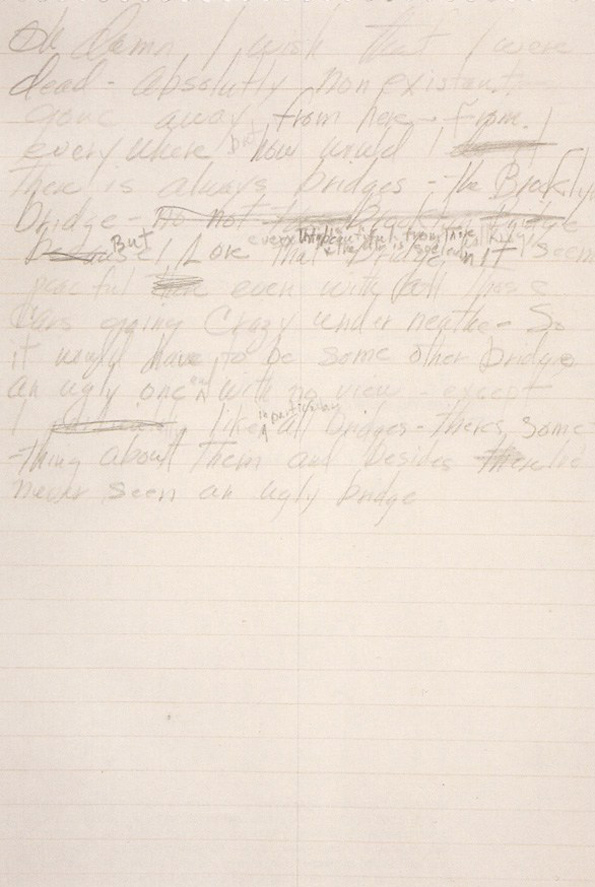 Oh damn I wish that I were
dead - absolutly non existant -
gone away from here - from
every where but how would I
There is always bridges - the Brooklyn
bridge - no not the Brooklyn Bridge
But I Love that bridge everything is beautiful from there and the air is so clean walking it seems
peaceful there even with all those
cars going crazy under neathe - So
it would have to be some other bridge
an ugly one and with no view - except
I particularly like in particular all bridges - theres some
thing about them and besides I've
never seen an ugly bridge